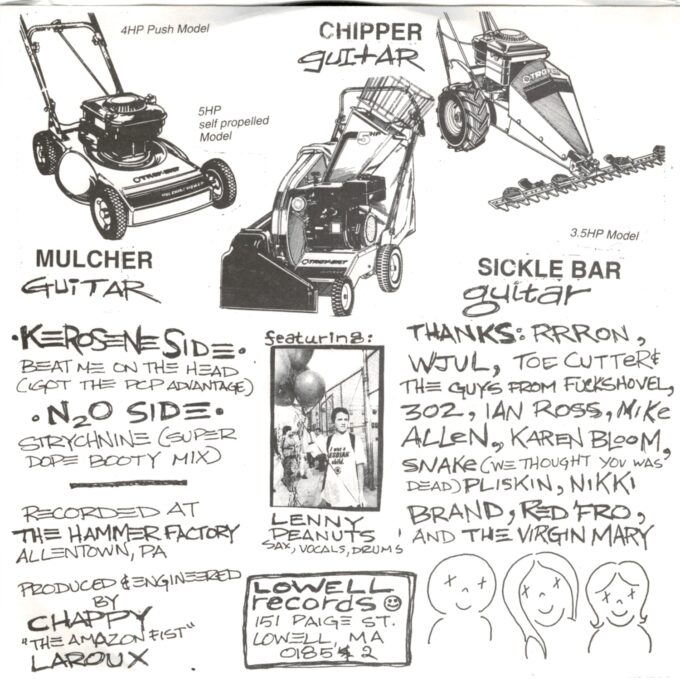 4HP Push Model
CHIPPER
guitar
5HP
self propelled
Model
5 HP
TROY-BILT
TROY-BILT
3.5HP Model
MULCHER
GUITAR
SICKLE BAR
guitar
•KEROSENE SIDE•
BEAT ME ON THE HEAD
(I GOT THE PCP ADVANTAGE)
•N2O SIDE•
STRYCHNINE (SUPER
DOPE BOOTY MIX)
RECORDED AT
THE HAMMER FACTORY
ALLENTOWN, PA
PRODUCED & ENGINEERED
BY
CHAPPY
"THE AMAZON FIST"
LAROUX
featuring:
I was a
LESBIAN
child.
LENNY
PEANUTS
SAX, VOCALS, DRUMS
LOWELL
records
151 PAIGE ST.
LOWELL, MA
01852
THANKS: RRRON,
WJUL, TOE CUTTER &
THE GUYS FROM FUCKSHOVEL,
302, IAN ROSS, MIKE
ALLEN, KAREN BLOOM,
SNAKE (WE THOUGHT YOU WAS
DEAD) PLISKIN, NIKKI
BRAND, RED 'FRO,
AND THE VIRGIN MARY